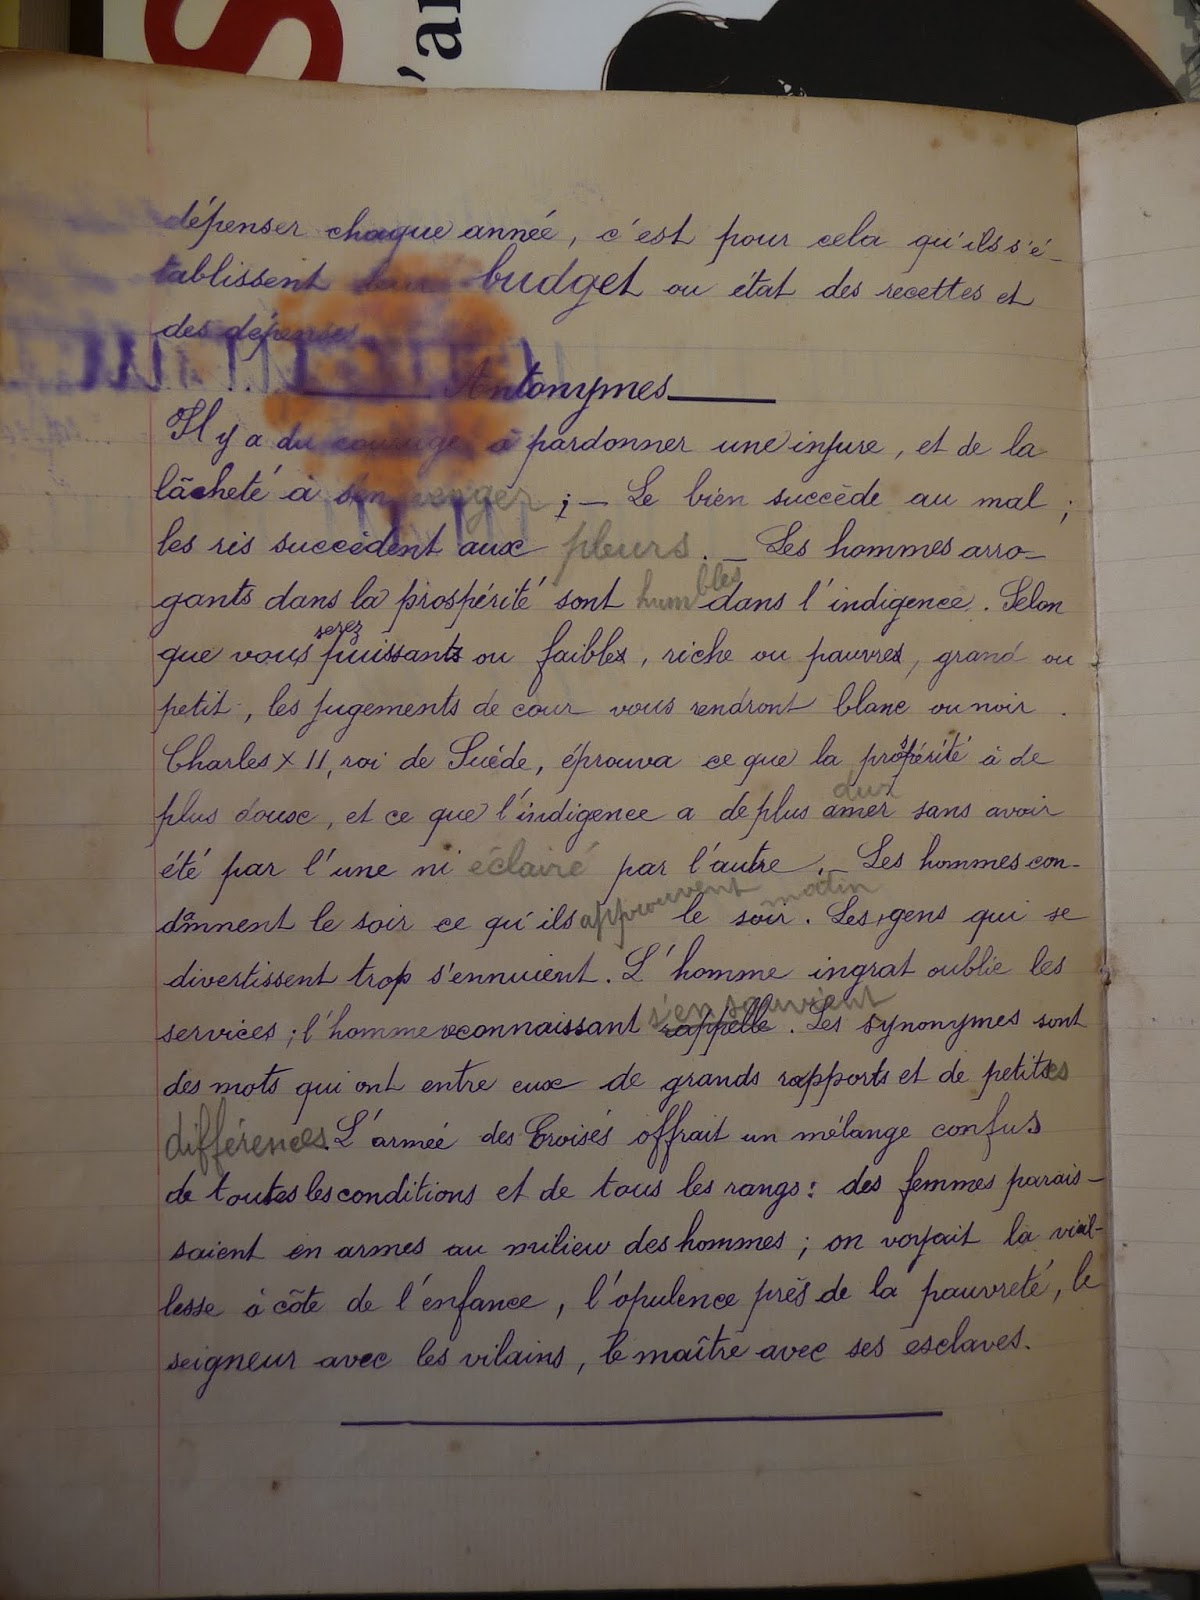 S
'ar
dépenser chaque année, c'est pour cela qu'ils s'é-
tablissent leur budget ou état des recettes et
des dépenses
Antonymes
Il y a du courage à pardonner une infure, et de la
lâcheté à s'en venger ; – Le bien succède au mal ;
les ris succèdent aux pleurs. – Les hommes arro-
gants dans la prospérité sont humbles dans l'indigence. Selon
que vous serez puissants ou faibles, riche ou pauvres, grand ou
petit, les jugements de cour vous rendront blanc ou noir.
Charles XII, roi de Suède, éprouva ce que la prospérité à de
plus douse, et ce que l'indigence a de plus amer dux sans avoir
été par l'une ni éclairé par l'autre. – Les hommes con-
dâmnent le soir ce qu'ils approuvent le soir matin. Les gens qui se
divertissent trop s'ennuient. L'homme ingrat oublie les
services ; l'homme reconnaissant rappelle s'en souvient. Les synonymes sont
des mots qui ont entre eux de grands rapports et de petites
différences. L'armeé des Croisés offrait un mélange confus
de toutes les conditions et de tous les rangs : des femmes parais-
saient en armes au milieu des hommes ; on voyait la vieil-
lesse à côte de l'enfance, l'opulence près de la pauvreté, le
seigneur avec les vilains, le maître avec ses esclaves.